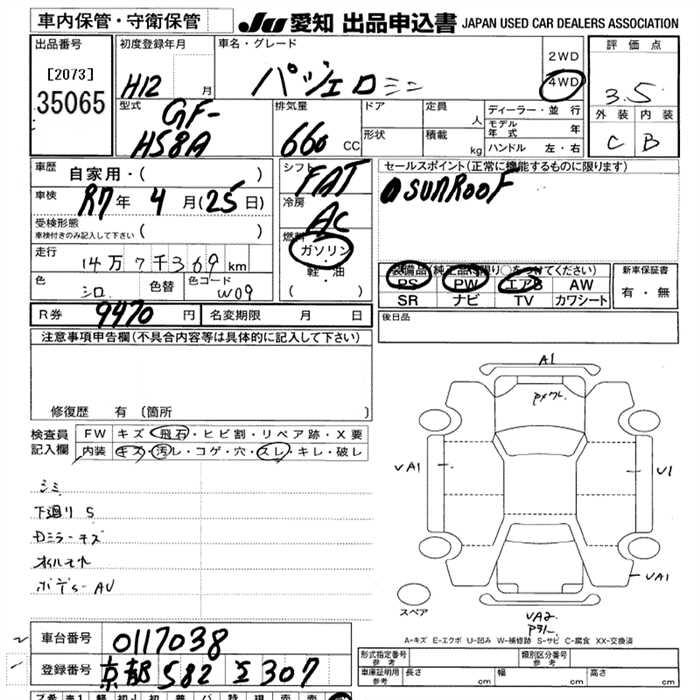 車内保管・守衛保管
JU 愛知 出品申込書 JAPAN USED CAR DEALERS ASSOCIATION
出品番号
[2073]
35065
初度登録年月
H12 月
車名・グレード
パジェロミニ
2WD
4WD
評価点
3.5
外装 内装
C B
型式
GF-
H58A
排気量
660 CC
ドア
形状
定員 人
積載 kg
ディーラー・並行
モデル年式 年
ハンドル 左・右
車歴 自家用・( )
車検 R7年 4月(25日)
受検形態
車検付きのみ記入して下さい ( )
走行 14万7千369km
色 シロ 色替 色コード W09
シフト FAT
冷房 AC
燃料
ガソリン
・
軽・油
( )
セールスポイント(正常に機能するものに限ります)
SUNROOF
装備品(純正品に限り○をつけてください)
PS PW エアB AW
SR ナビ TV カワシート
新車保証書
有・無
R券 9470円 名変期限 月 日
後日品
注意事項申告欄(不具合内容等は具体的に記入して下さい)
修復歴 有 〔箇所 〕
検査員
記入欄
FW キズ・飛石・ヒビ割・リペア跡・X要
内装 キズ・汚レ・コゲ・穴・スレ・キレ・破レ
シミ
下廻り S
Dミラーキズ
オイルモレ
ボデー AU
A1
UA1
U1
UA1
UA2
スペア
A-キズ E-エクボ U-凹み W-補修跡 S-サビ C-腐食 XX-交換済
車台番号 0117038
登録番号 京都 582 え 307
形式指定番号
参考
類別区分番号
参考
車庫証明用
参考
長さ cm 幅 cm 高さ cm